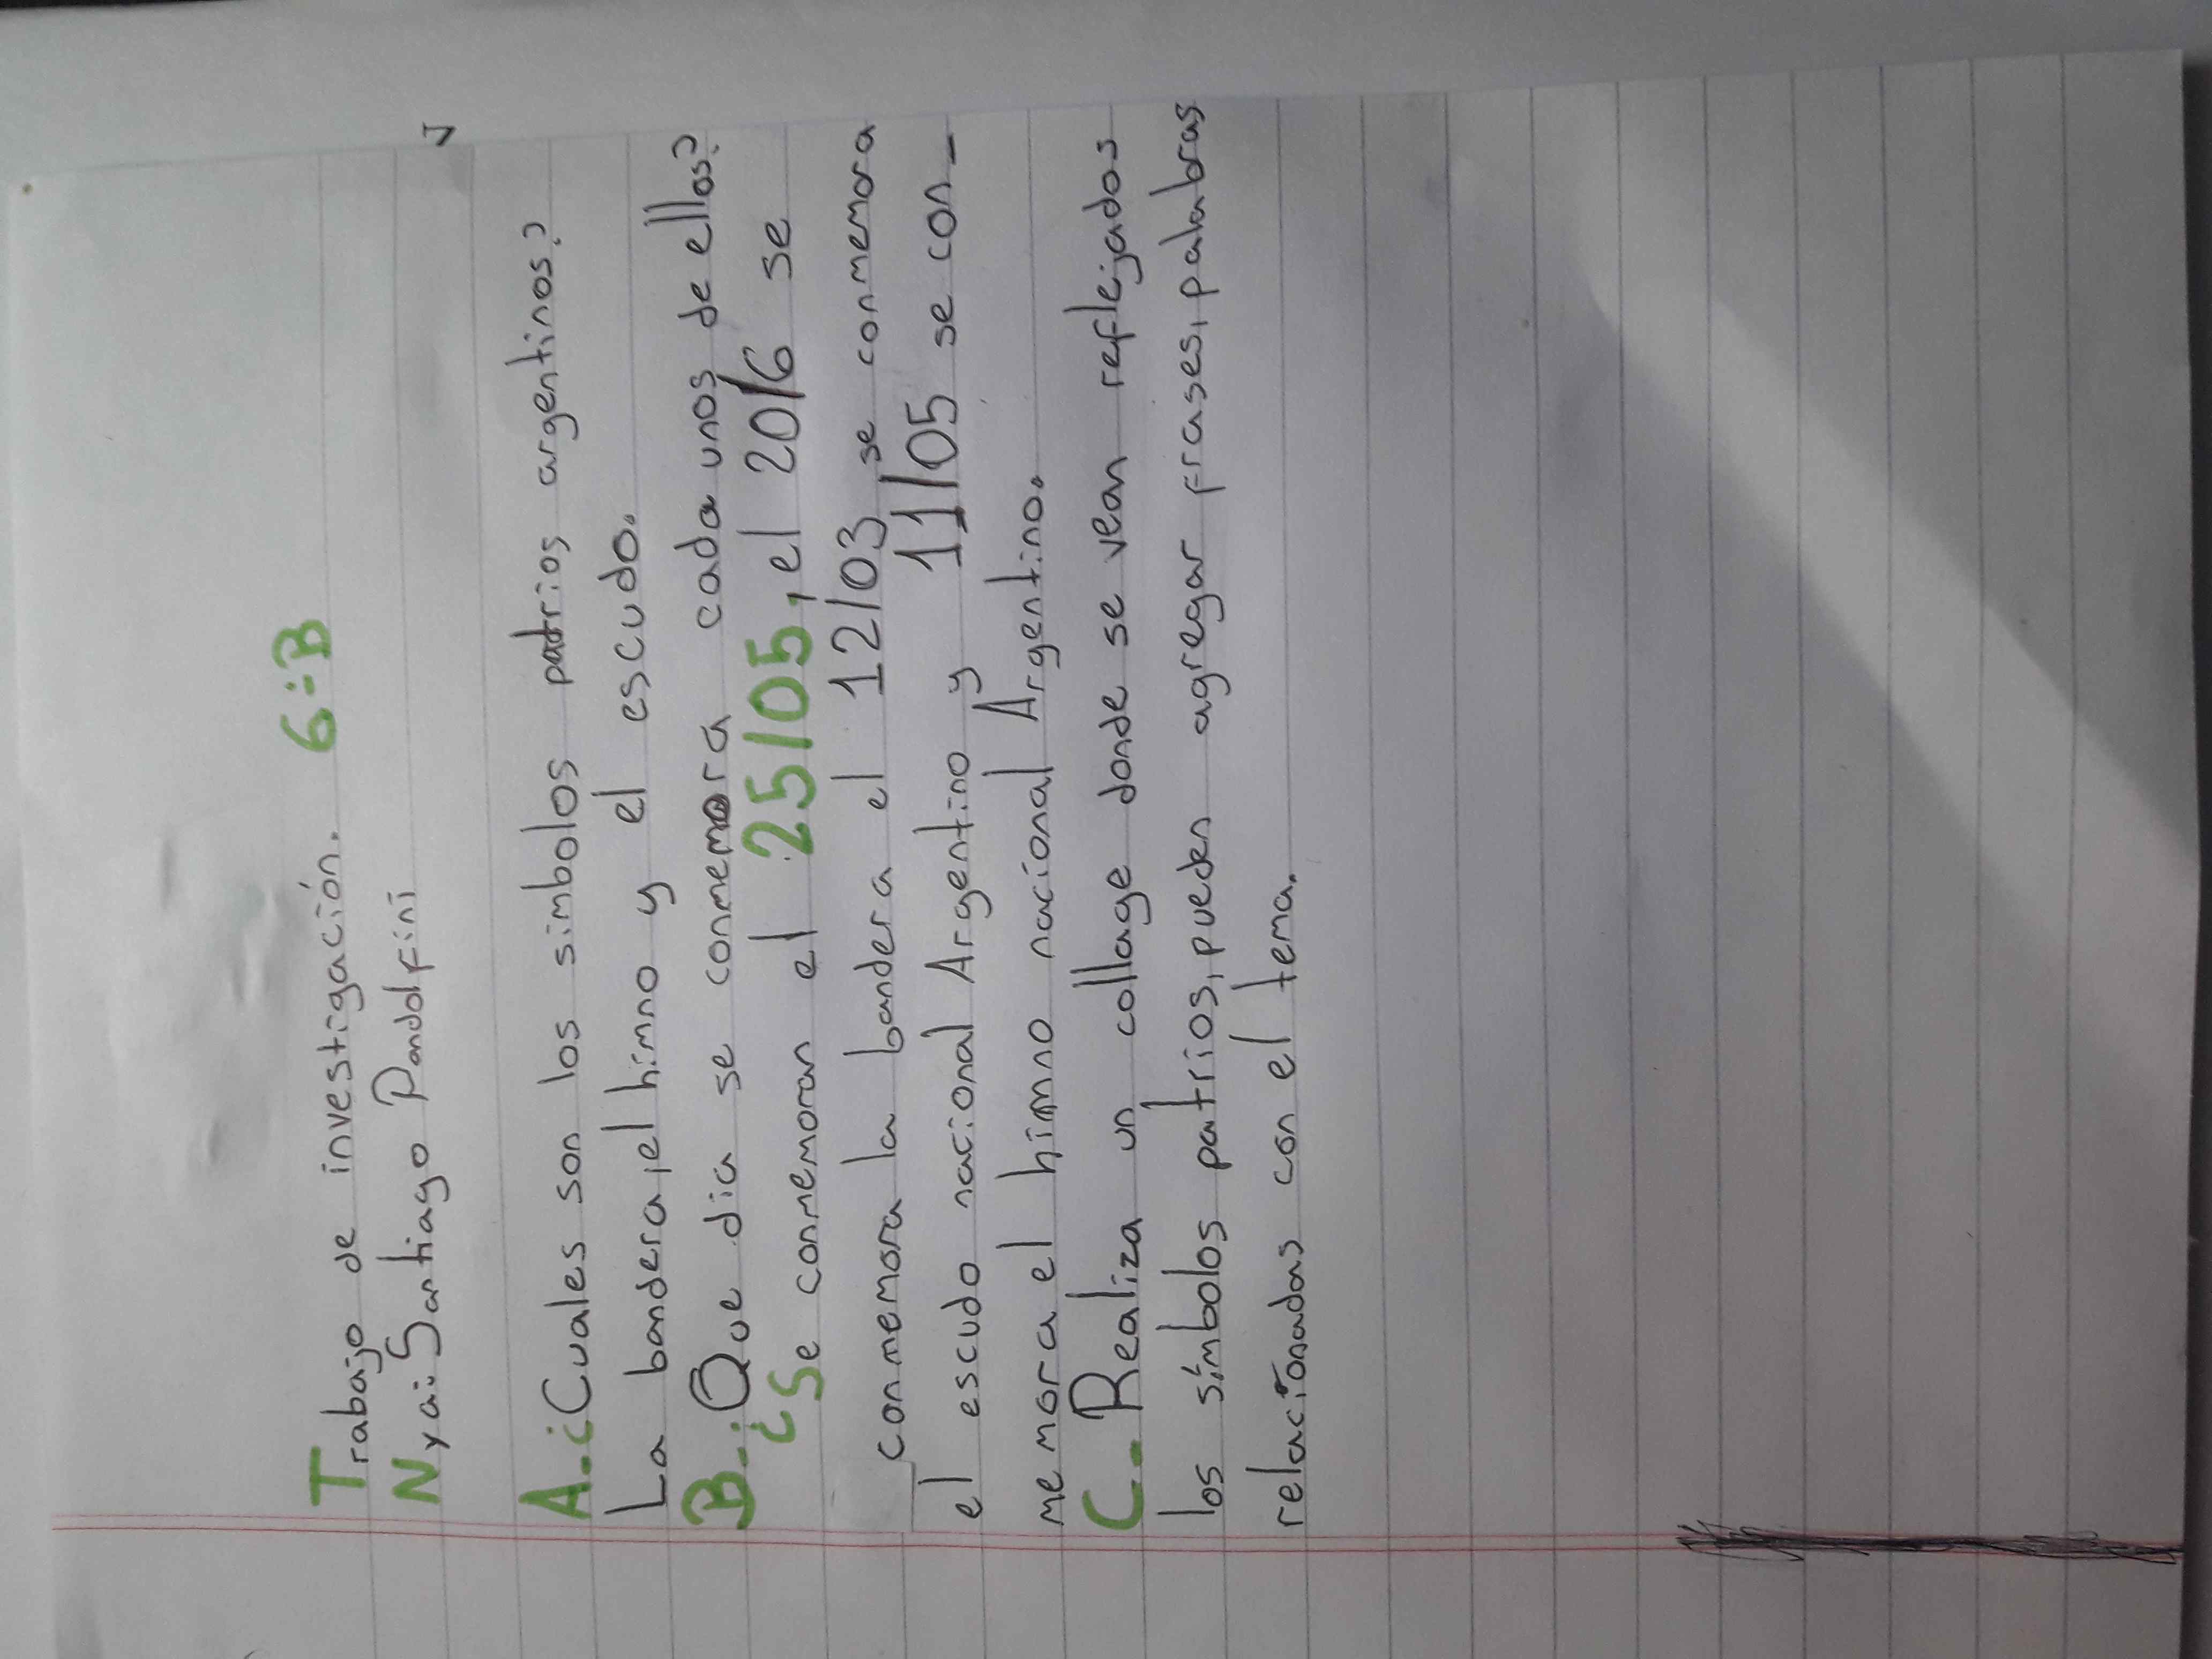 Trabajo de investigación. 6:B
N y a: Santiago Pandolfini
A-¿Cuales son los simbolos patrios argentinos?
La bandera, el himno y el escudo.
B-¿Que dia se conmemora cada unos de ellos?
¿Se conmemoran el 25/05, el 20/6 se
conmemora la bandera el 12/03 se conmemora
el escudo nacional Argentino y 11/05 se con-
memora el himno nacional Argentino.
C- Realiza un collage donde se vean reflejados
los símbolos patrios, pueden agregar frases, palabras
relacionadas con el tema.